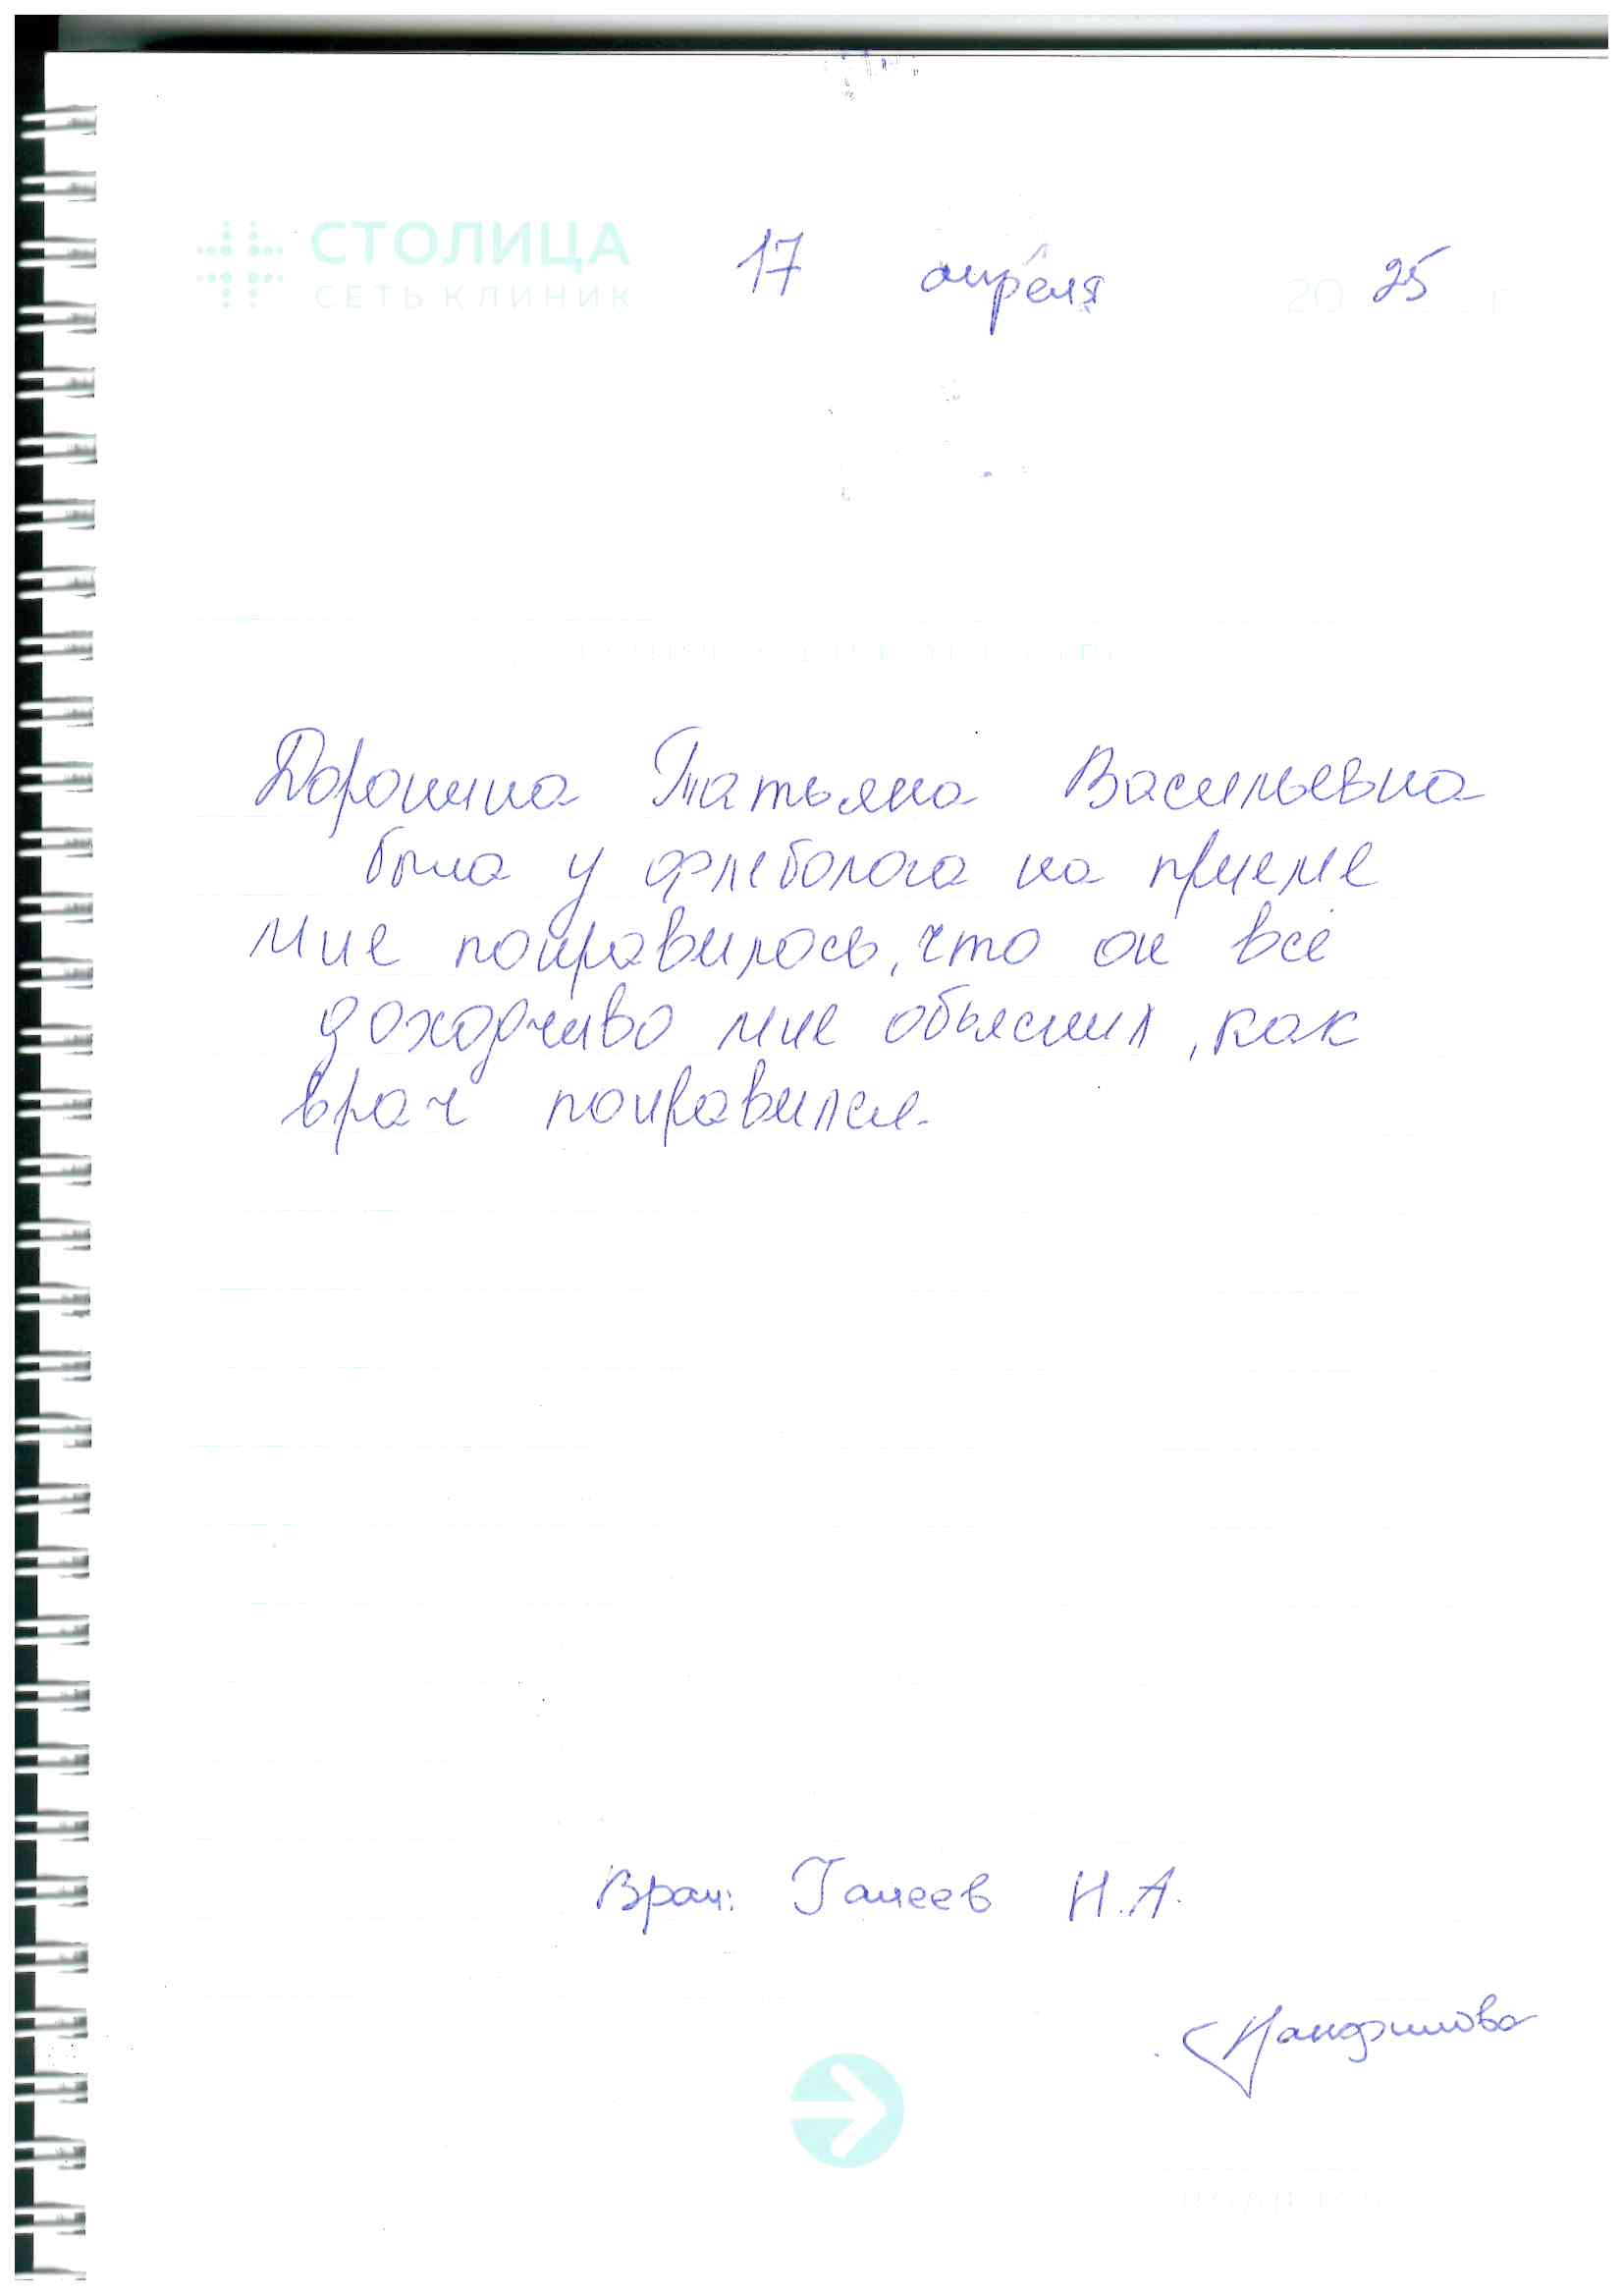 СТОЛИЦА
СЕТЬ КЛИНИК
17 апреля 2025 г
Доронина Татьяна Васильевна
была у флеболога на приеме
мне понравилось, что он всё
доходчиво мне объяснил, как
врач понравился.
Врач: Галеев Н.А.